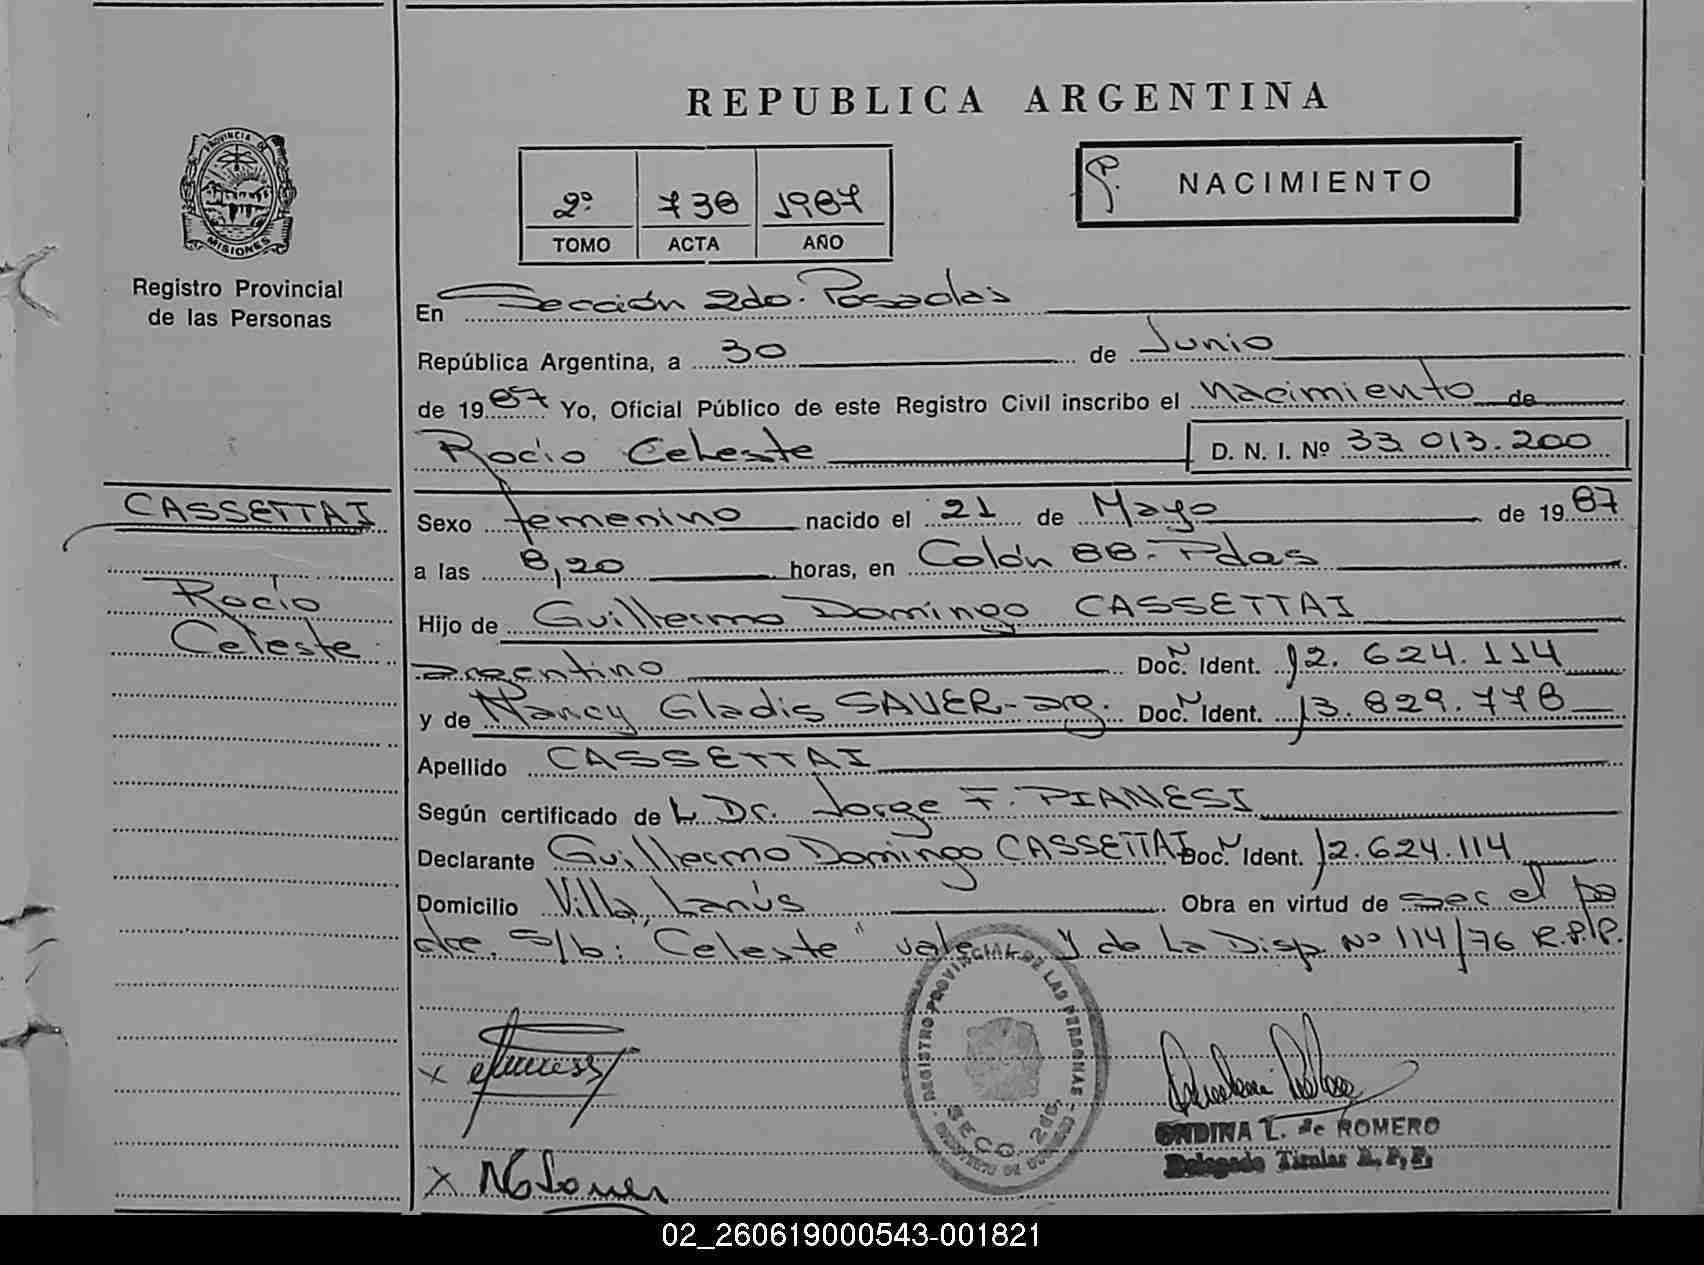 REPUBLICA ARGENTINA
PROVINCIA DE
MISIONES
Registro Provincial
de las Personas
2º 738 1987
TOMO ACTA AÑO
NACIMIENTO
En Sección 2do. Posadas
República Argentina, a 30 de Junio
de 1987 Yo, Oficial Público de este Registro Civil inscribo el nacimiento de
Rocio Celeste D. N. I. Nº 33.013.200
CASSETTAI
Rocío
Celeste
Sexo femenino nacido el 21 de Mayo de 1987
a las 8,20 horas, en Colón 88- Pdas
Hijo de Guillermo Domingo CASSETTAI
argentino Doc. N Ident. 12.624.114
y de Nancy Gladis SAUER- arg. Doc. N Ident. 13.829.778
Apellido CASSETTAI
Según certificado de L Dr. Jorge F. PIANESI
Declarante Guillermo Domingo CASSETTAI Doc. N Ident. 12.624.114
Domicilio Villa Lanús Obra en virtud de ser el pa
dre. S/b: "Celeste" vale y de La Disp. Nº 114/76 R.P.P.
REGISTRO PROVINCIAL DE LAS PERSONAS
SECC. 2da.
ONDINA L. de ROMERO
Delegado Titular R.P.P.
02_260619000543-001821